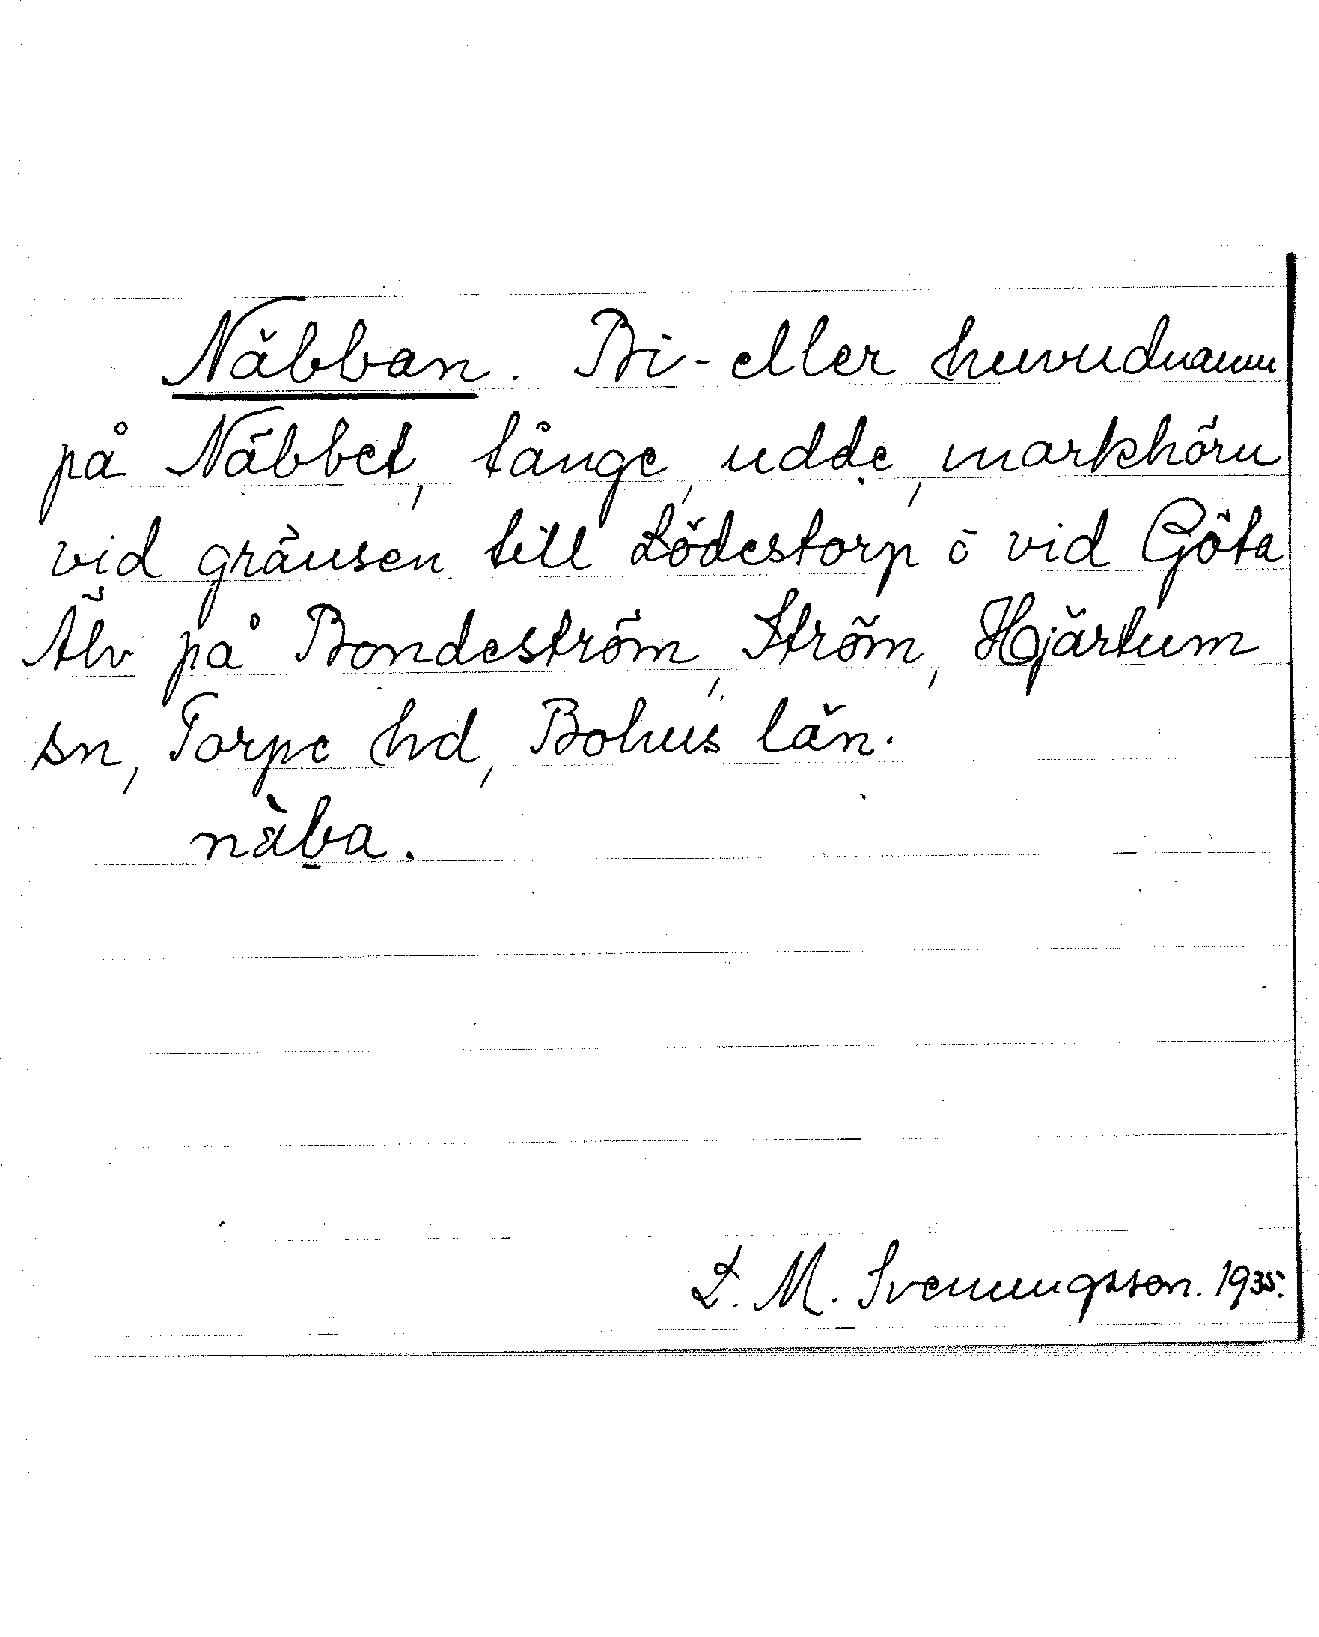 Näbban. Bi- eller huvudnamn
på Näbbet, tånge, udde, markhörn
vid gränsen till Lödestorp ö vid Göta
Älv på Bondeström, Ström, Hjärtum
sn, Torpe hd, Bohus län.
nàba.
L. M. Svenungsson. 1935.